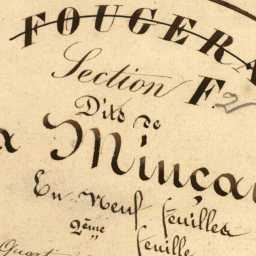 FOUGERA
Section F.2
Dite de
a Minçai
En Neuf feuilles
2ème feuille
Quart